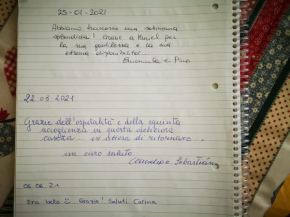 25-01-2021
Abbiamo trascorso una settimana
splendida! Grazie a Muriel per
la sua gentilezza e la sua
estrema disponibilità!
Emanuela e Pino
22.05.2021
Grazie dell'ospitalità e della squisita
accoglienza in questa deliziosa
casetta... in attesa di ritornare
un caro saluto
Sebastiano
06.06.21
Era bello Grazie! Saluti Carina